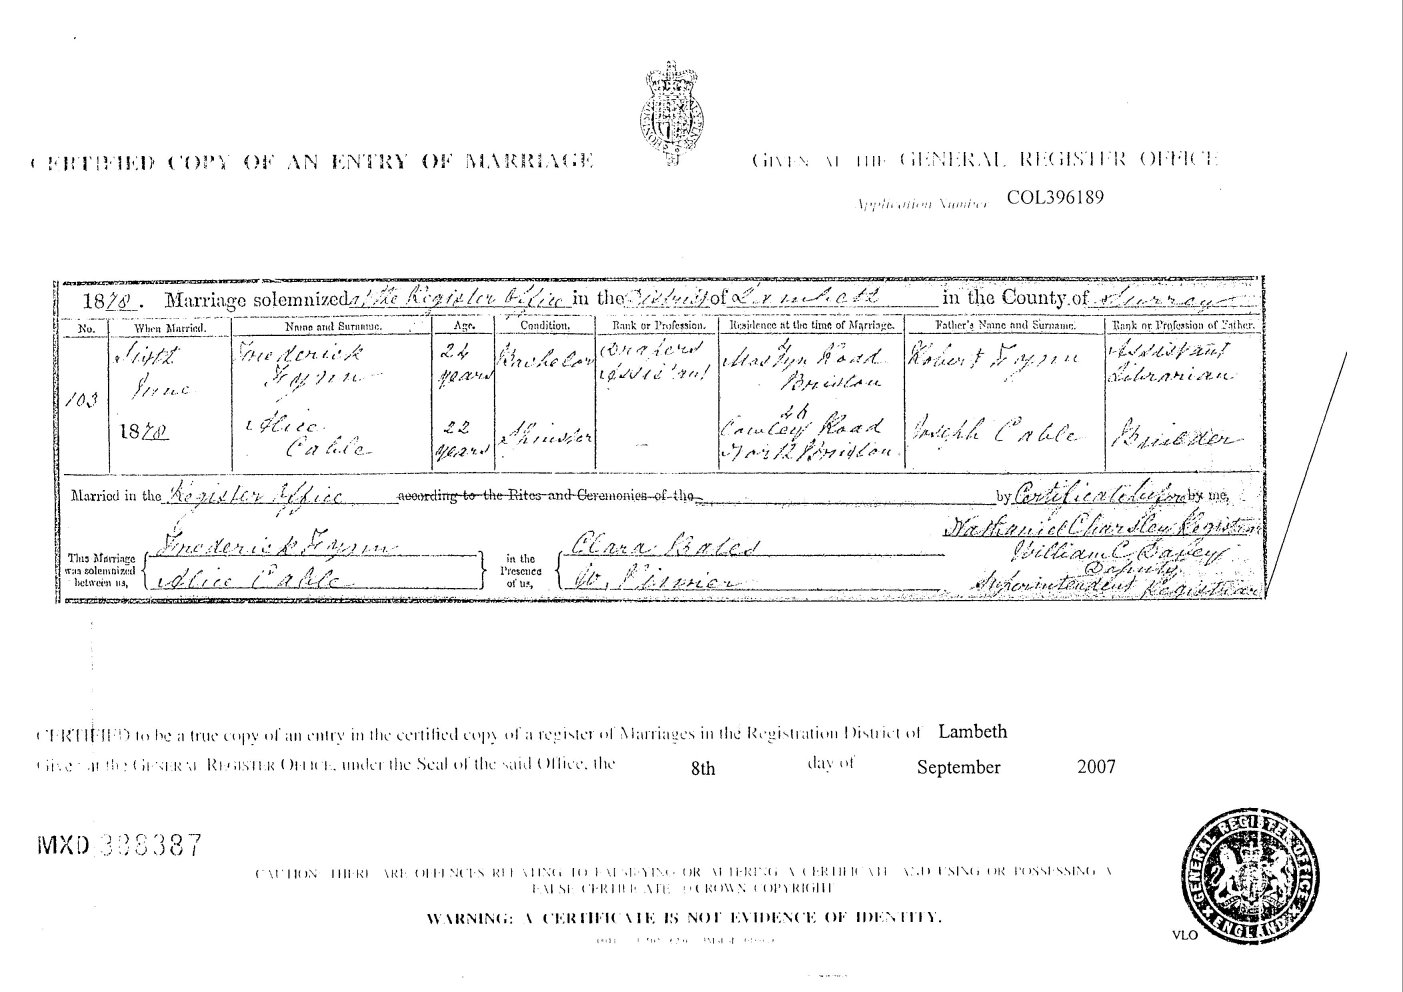 CERTIFIED COPY OF AN ENTRY OF MARRIAGE
GIVEN AT THE GENERAL REGISTER OFFICE
Application Number COL396189
1878. Marriage solemnized at the Register Office in the District of Lambeth in the County of Surrey
No. When Married. Name and Surname. Age. Condition. Rank or Profession. Residence at the time of Marriage. Father's Name and Surname. Rank or Profession of Father.
103
June
1878
Frederick
24
years
Bachelor
Drapers
Assistant
Mostyn Road
Brixton
Robert
Assistant
Librarian
Alice
Cable
22
years
Spinster
—
Cowley Road
North Brixton
Joseph Cable
Builder
Married in the Register Office according to the Rites and Ceremonies of the by Certificate before by me,
This Marriage was solemnized between us,
Frederick
Alice Cable
in the Presence of us,
Clara Bales
W.
Nathaniel Charsley Registrar
William C
Deputy
Superintendent Registrar
CERTIFIED to be a true copy of an entry in the certified copy of a register of Marriages in the Registration District of Lambeth
Given at the GENERAL REGISTER OFFICE, under the Seal of the said Office, the 8th day of September 2007
MXD 388387
CAUTION THERE ARE OFFENCES RELATING TO FALSIFYING OR ALTERING A CERTIFICATE AND USING OR POSSESSING A
FALSE CERTIFICATE © CROWN COPYRIGHT
WARNING: A CERTIFICATE IS NOT EVIDENCE OF IDENTITY.
GENERAL REGISTER OFFICE
ENGLAND
VLO